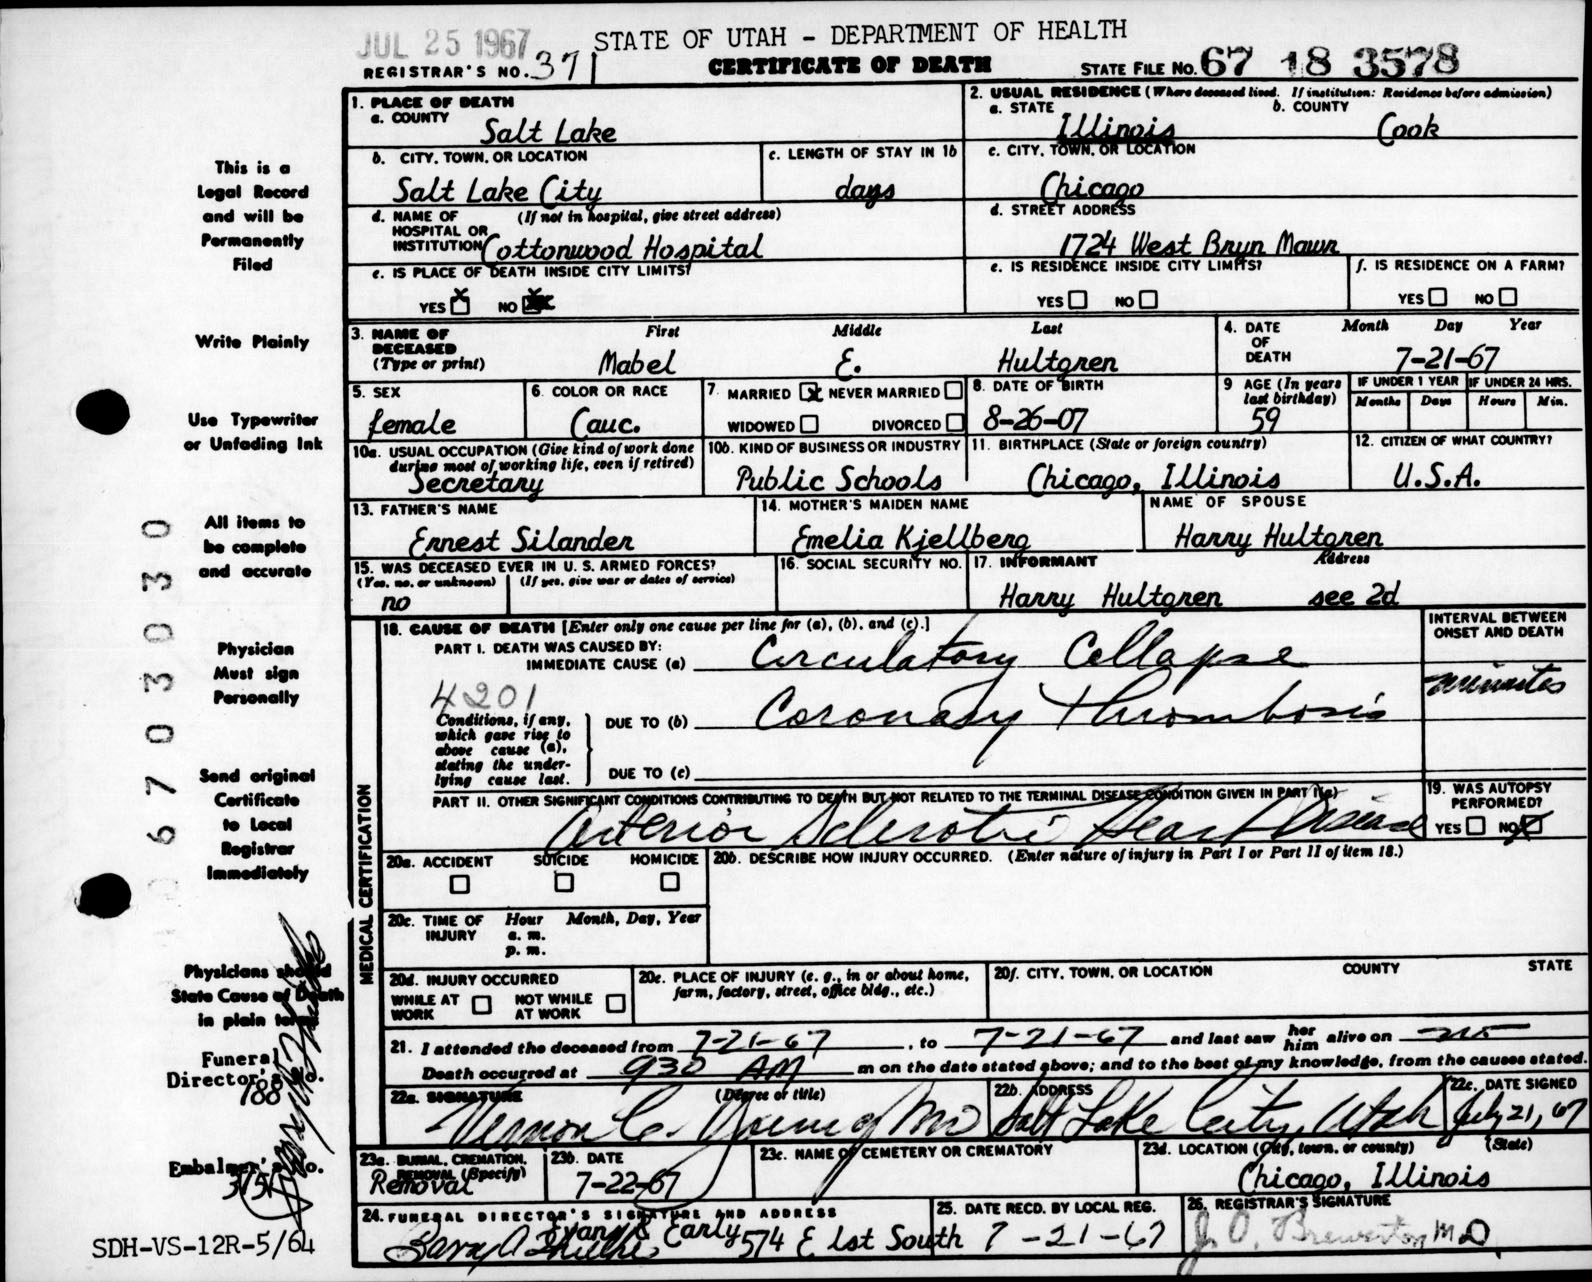 JUL 25 1967
STATE OF UTAH - DEPARTMENT OF HEALTH
REGISTRAR'S NO. 371
CERTIFICATE OF DEATH
STATE FILE NO. 67 18 3578
1. PLACE OF DEATH
a. COUNTY
Salt Lake
2. USUAL RESIDENCE (Where deceased lived. If institution: Residence before admission)
a. STATE b. COUNTY
Illinois Cook
b. CITY, TOWN, OR LOCATION
Salt Lake City
c. LENGTH OF STAY IN 1b
days
c. CITY, TOWN, OR LOCATION
Chicago
d. NAME OF HOSPITAL OR INSTITUTION (If not in hospital, give street address)
Cottonwood Hospital
d. STREET ADDRESS
1724 West Bryn Mawr
e. IS PLACE OF DEATH INSIDE CITY LIMITS?
YES X NO
e. IS RESIDENCE INSIDE CITY LIMITS?
YES NO
f. IS RESIDENCE ON A FARM?
YES NO
3. NAME OF DECEASED (Type or print)
First Middle Last
Mabel E. Hultgren
4. DATE OF DEATH
Month Day Year
7-21-67
5. SEX
female
6. COLOR OR RACE
Cauc.
7. MARRIED X NEVER MARRIED
WIDOWED DIVORCED
8. DATE OF BIRTH
8-26-07
9 AGE (In years last birthday)
59
IF UNDER 1 YEAR
Months Days
IF UNDER 24 HRS.
Hours Min.
10a. USUAL OCCUPATION (Give kind of work done during most of working life, even if retired)
Secretary
10b. KIND OF BUSINESS OR INDUSTRY
Public Schools
11. BIRTHPLACE (State or foreign country)
Chicago, Illinois
12. CITIZEN OF WHAT COUNTRY?
U.S.A.
13. FATHER'S NAME
Ernest Silander
14. MOTHER'S MAIDEN NAME
Emelia Kjellberg
NAME OF SPOUSE
Harry Hultgren
15. WAS DECEASED EVER IN U. S. ARMED FORCES?
(Yes, no, or unknown) (If yes, give war or dates of service)
no
16. SOCIAL SECURITY NO.
17. INFORMANT Address
Harry Hultgren see 2d
MEDICAL CERTIFICATION
18. CAUSE OF DEATH [Enter only one cause per line for (a), (b), and (c).]
INTERVAL BETWEEN ONSET AND DEATH
PART I. DEATH WAS CAUSED BY:
IMMEDIATE CAUSE (a) Circulatory Collapse
minutes
4201
Conditions, if any, which gave rise to above cause (a), stating the underlying cause last.
DUE TO (b) Coronary Thrombosis
DUE TO (c)
PART II. OTHER SIGNIFICANT CONDITIONS CONTRIBUTING TO DEATH BUT NOT RELATED TO THE TERMINAL DISEASE CONDITION GIVEN IN PART I(a)
Arterio Sclerotic Heart Disease
19. WAS AUTOPSY PERFORMED?
YES NO X
20a. ACCIDENT SUICIDE HOMICIDE
20b. DESCRIBE HOW INJURY OCCURRED. (Enter nature of injury in Part I or Part II of item 18.)
20c. TIME OF INJURY Hour Month, Day, Year
a. m.
p. m.
20d. INJURY OCCURRED
WHILE AT WORK NOT WHILE AT WORK
20e. PLACE OF INJURY (e. g., in or about home, farm, factory, street, office bldg., etc.)
20f. CITY, TOWN, OR LOCATION COUNTY STATE
21. I attended the deceased from 7-21-67, to 7-21-67 and last saw her him alive on
Death occurred at 930 AM m on the date stated above; and to the best of my knowledge, from the causes stated.
22a. SIGNATURE (Degree or title)
Vernon C. Young MD
22b. ADDRESS
Salt Lake City, Utah
22c. DATE SIGNED
July 21, 67
23a. BURIAL, CREMATION, REMOVAL (Specify)
Removal
23b. DATE
7-22-67
23c. NAME OF CEMETERY OR CREMATORY
23d. LOCATION (City, town, or county) (State)
Chicago, Illinois
24. FUNERAL DIRECTOR'S SIGNATURE AND ADDRESS
Evans & Early 574 E 1st South
25. DATE RECD. BY LOCAL REG.
7-21-67
26. REGISTRAR'S SIGNATURE
J. O. Brewerton M.D.
This is a
Legal Record
and will be
Permanently
Filed
Write Plainly
Use Typewriter
or Unfading Ink
All items to
be complete
and accurate
Physician
Must sign
Personally
Send original
Certificate
to Local
Registrar
Immediately
Physicians should
State Cause of Death
in plain terms
Funeral
Director's No.
788
Embalmer's No.
SDH-VS-12R-5/64